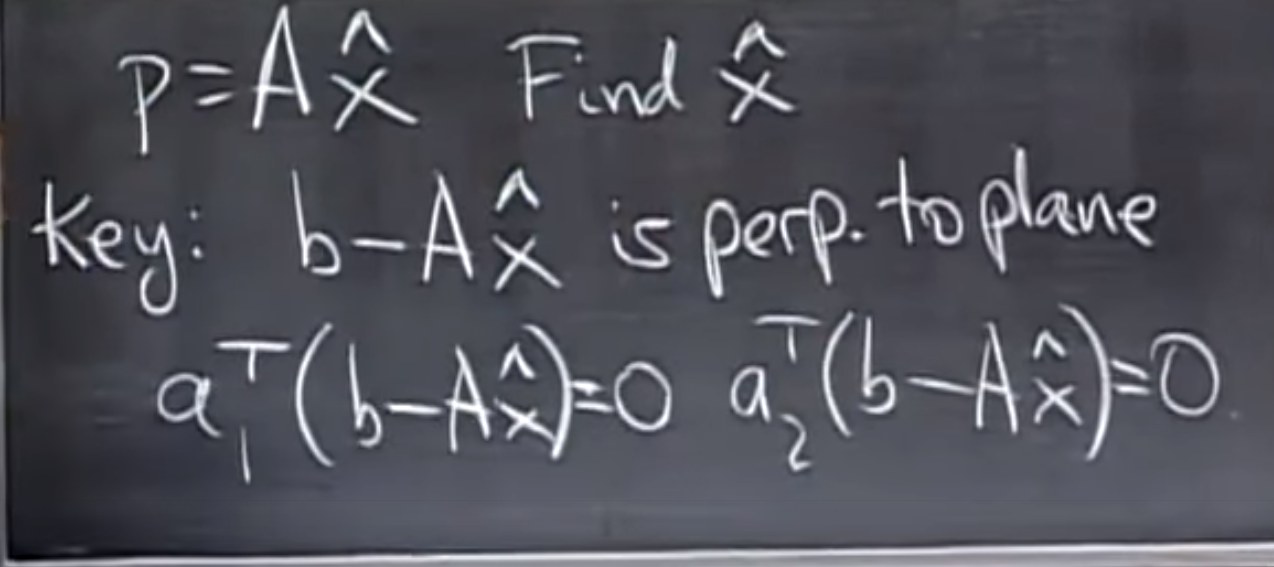 p = A x̂  Find x̂
Key: b - A x̂ is perp. to plane
a₁ᵀ(b - A x̂) = 0  a₂ᵀ(b - A x̂) = 0.